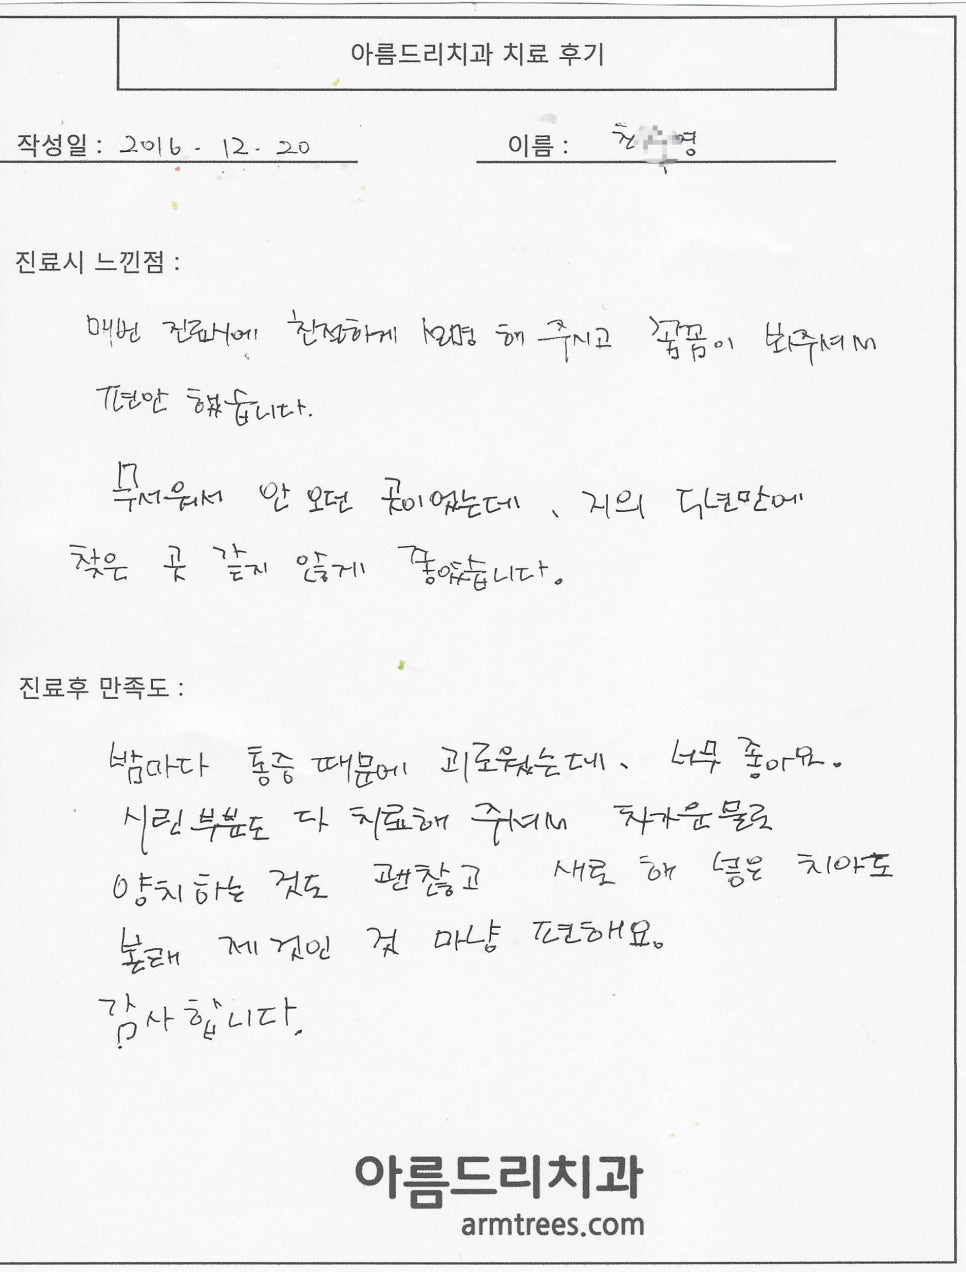 아름드리치과 치료 후기
작성일 : 2016 . 12 . 20
이름 : 천 영
진료시 느낀점 :
매번 진료시에 친절하게 설명 해 주시고 꼼꼼이 봐주셔서
편안 했습니다.
무서워서 안 오던 곳이었는데, 거의 12년만에
찾은 곳 같지 않게 좋았습니다.
진료후 만족도 :
밤마다 통증 때문에 괴로웠는데, 너무 좋아요.
시린 부분도 다 치료해 주셔서 차가운물로
양치하는 것도 괜찮고 새로 해 넣은 치아도
본래 제 것인 것 마냥 편해요.
감사합니다.
아름드리치과
armtrees.com